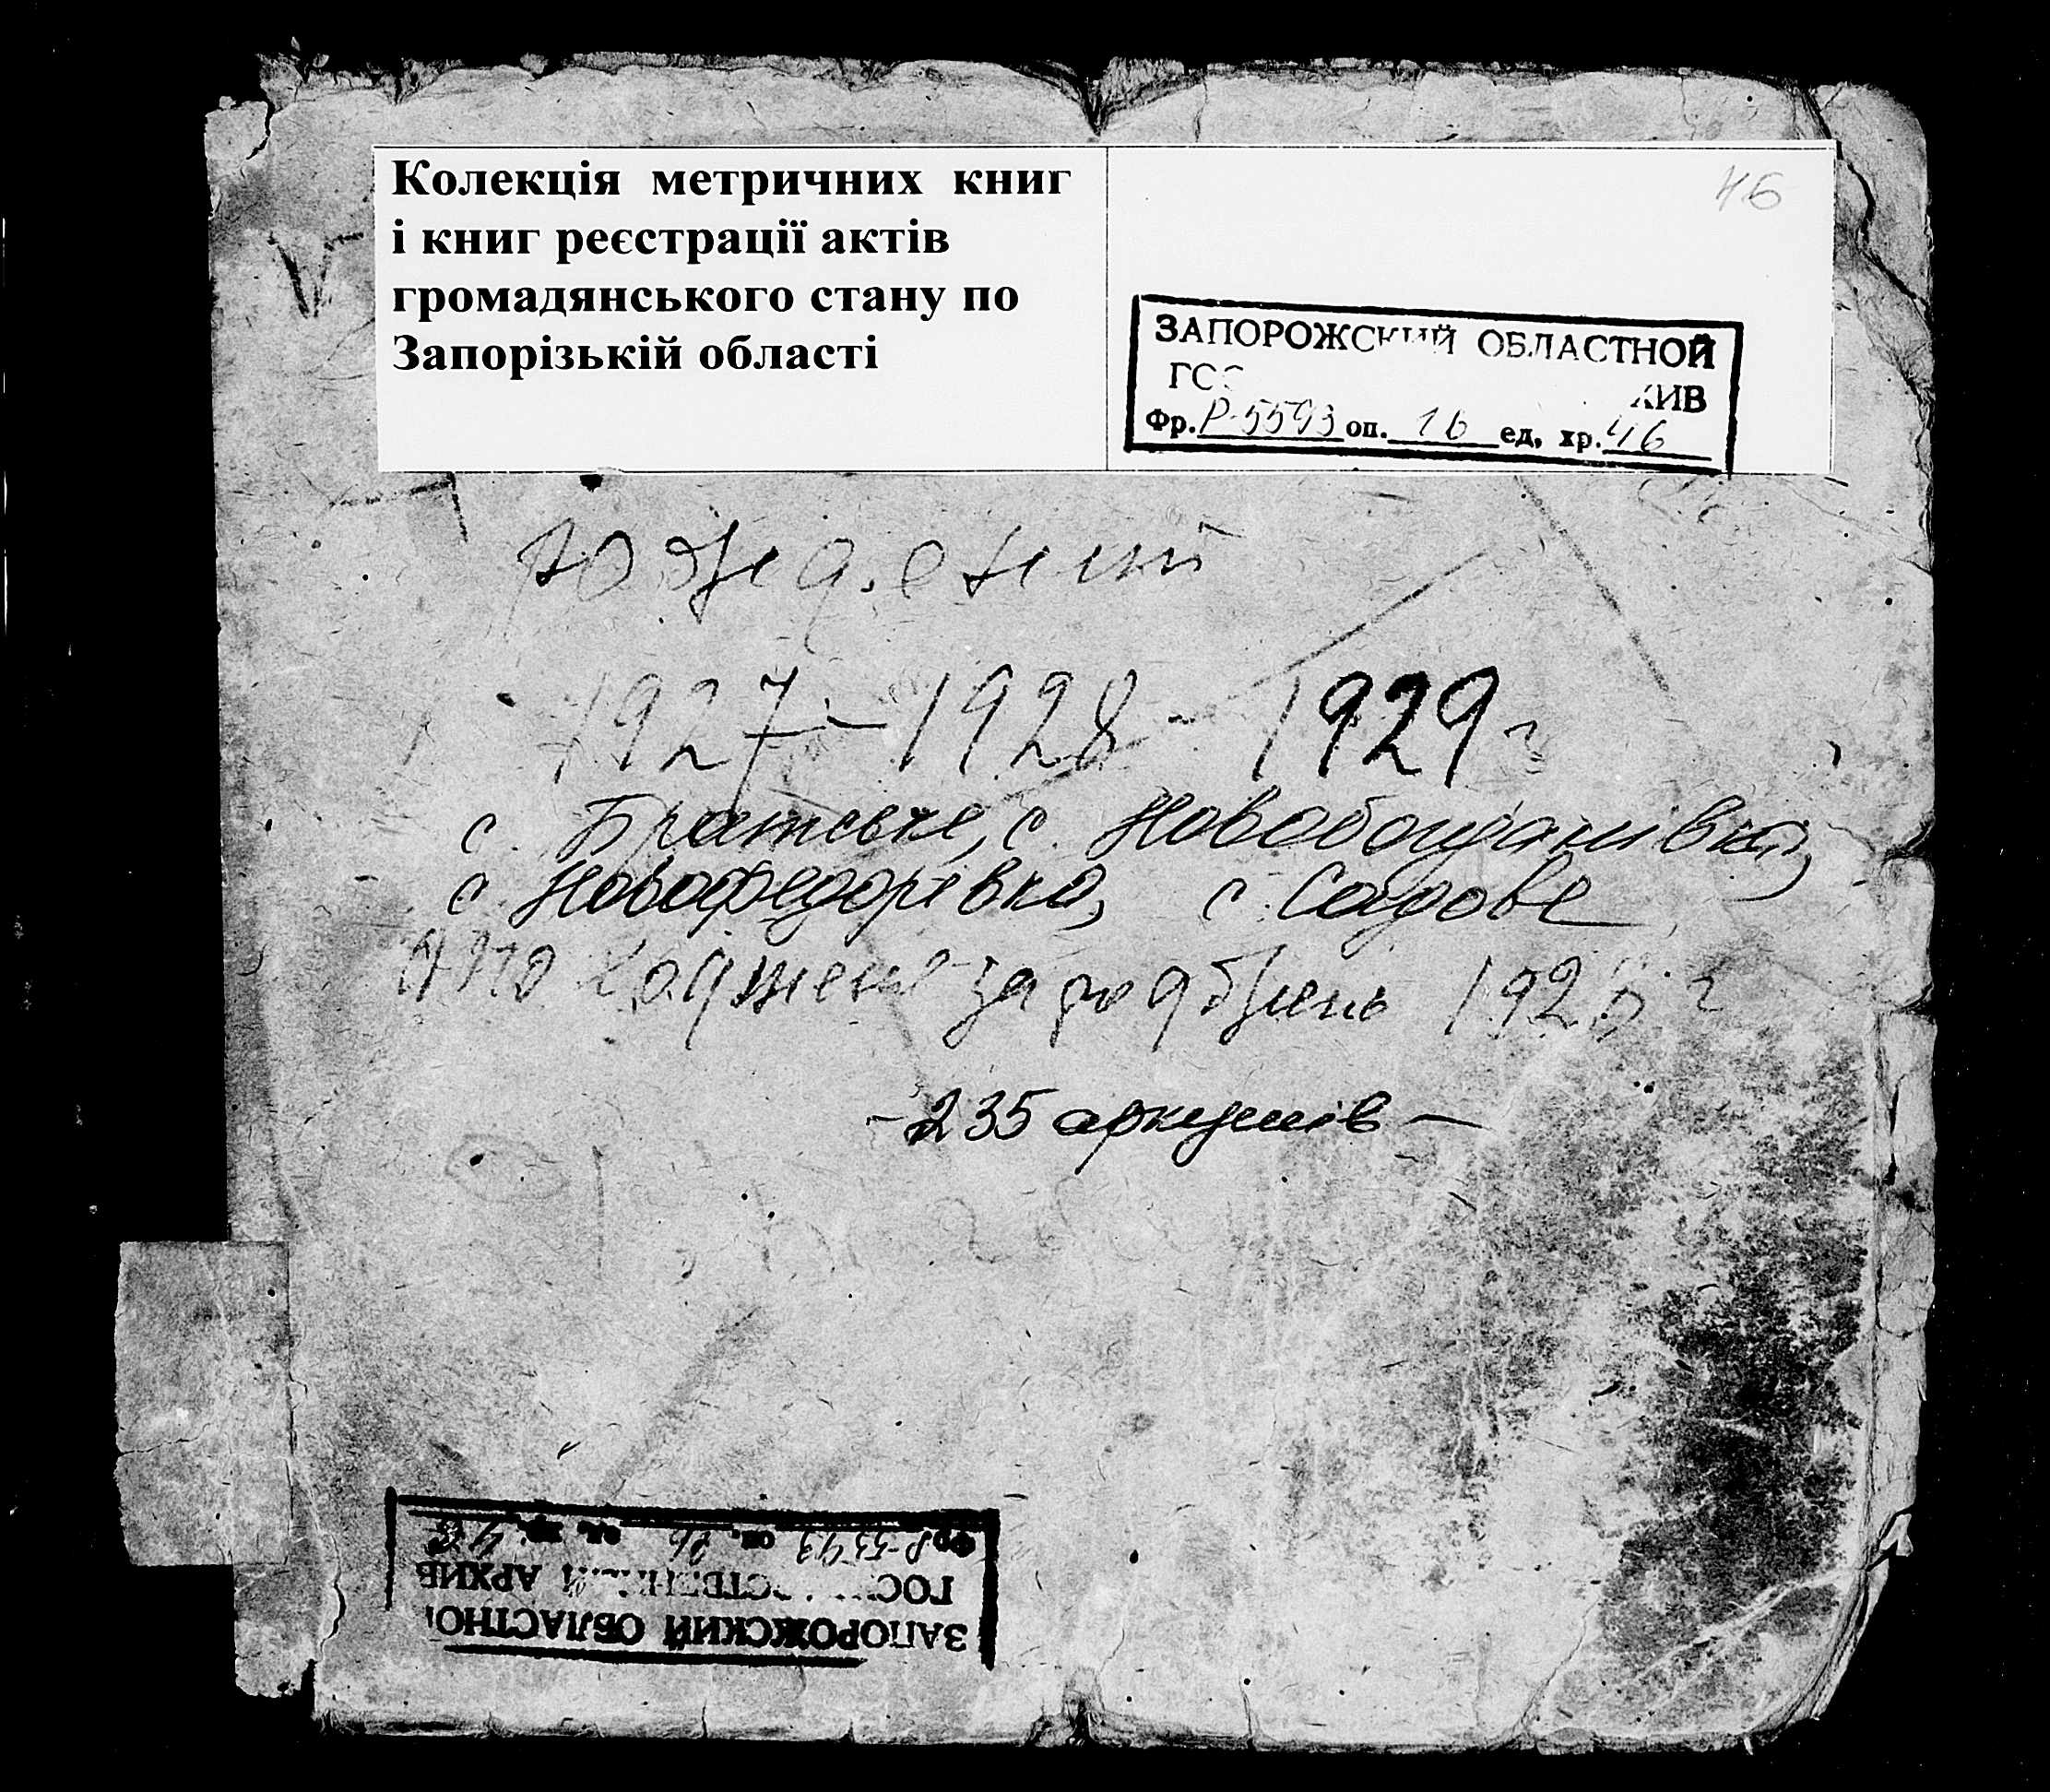 Колекція метричних книг
і книг реєстрації актів
громадянського стану по
Запорізькій області
46
ЗАПОРОЖСКИЙ ОБЛАСТНОЙ
ГОС ХИВ
Фр. Р-5593 оп. 1б ед. хр. 46
рождений
1927 - 1928 - 1929 г
с. Братське, с. Новобогданівка,
с. Новофедорівка, с. Садове
за 192 г
- 235 аркушів -
ЗАПОРОЖСКИЙ ОБЛАСТНО
ГОС СТВЕННЫЙ АРХИВ
Фр. Р-5593 оп. 1б ед. хр. 46